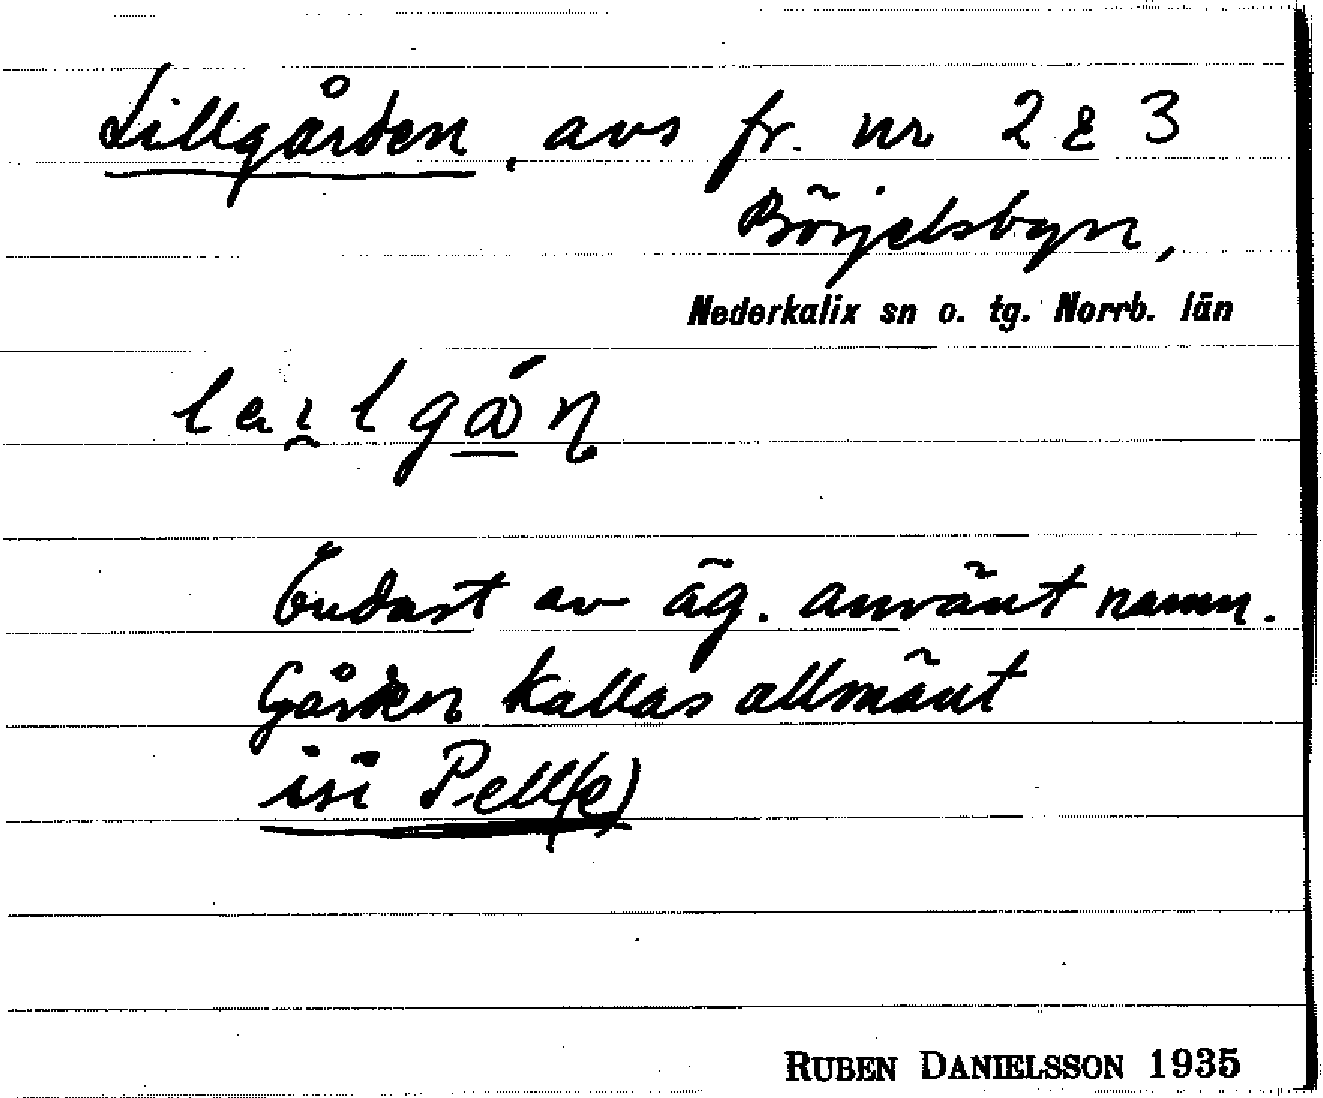 Lillgården, avs fr. nr 2 & 3
Börjelsbyn,
Nederkalix sn o. tg. Norrb. län
Endast av äg. använt namn.
Gården kallas allmänt
isi Pell(e)
RUBEN DANIELSSON 1935